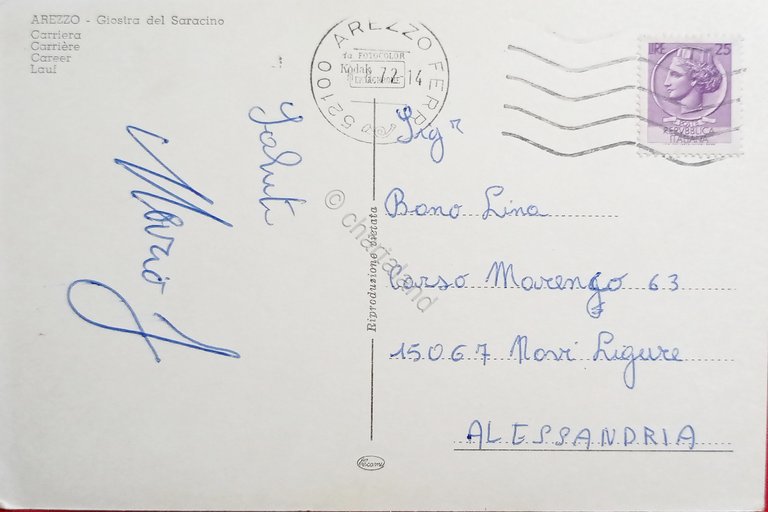 AREZZO - Giostra del Saracino
Carriera
Carrière
Career
Lauf
Saluti
AREZZO FERR
52100
FOTOCOLOR
Kodak
72-14
LIRE 25
POSTE
REPVBBLICA
ITALIANA
Sigr
Bono Lina
Corso Marengo 63
15067 Novi Ligure
ALESSANDRIA
Riproduzione vietata
© charialand